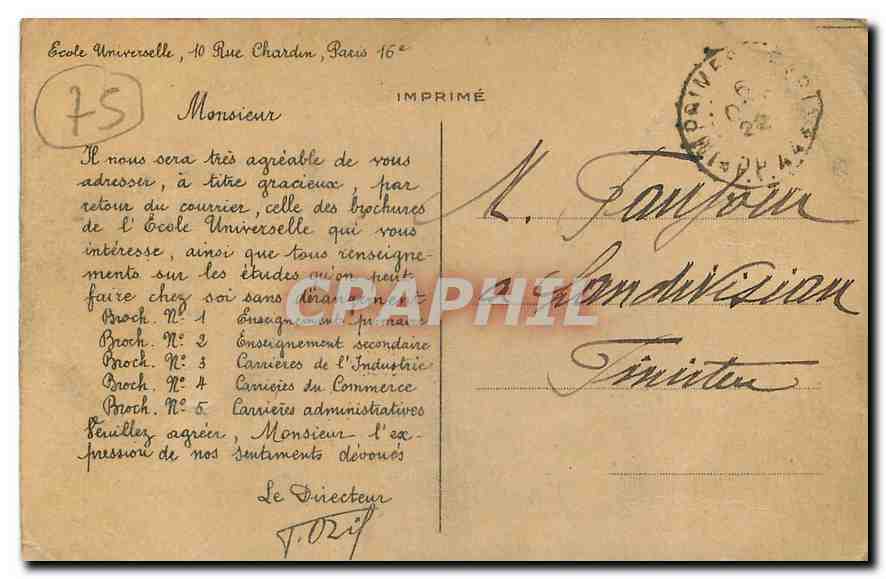 Ecole Universelle, 10 Rue Chardin, Paris 16e
75
IMPRIMÉ
Monsieur
Il nous sera très agréable de vous
adresser, à titre gracieux, par
retour du courrier, celle des brochures
de l'École Universelle qui vous
intéresse, ainsi que tous renseigne-
ments sur les études qu'on peut
faire chez soi sans dérangement
Broch. No 1 Enseignement primaire
Broch. No 2 Enseignement secondaire
Broch. No 3 Carrières de l'Industrie
Broch. No 4 Carrières du Commerce
Broch. No 5. Carrières administratives
Veuillez agréer, Monsieur l'ex-
pression de nos sentiments dévoués
Le Directeur
IMPRIMES
22
M.
a Landivisiau
Finistère
CPARPHIL